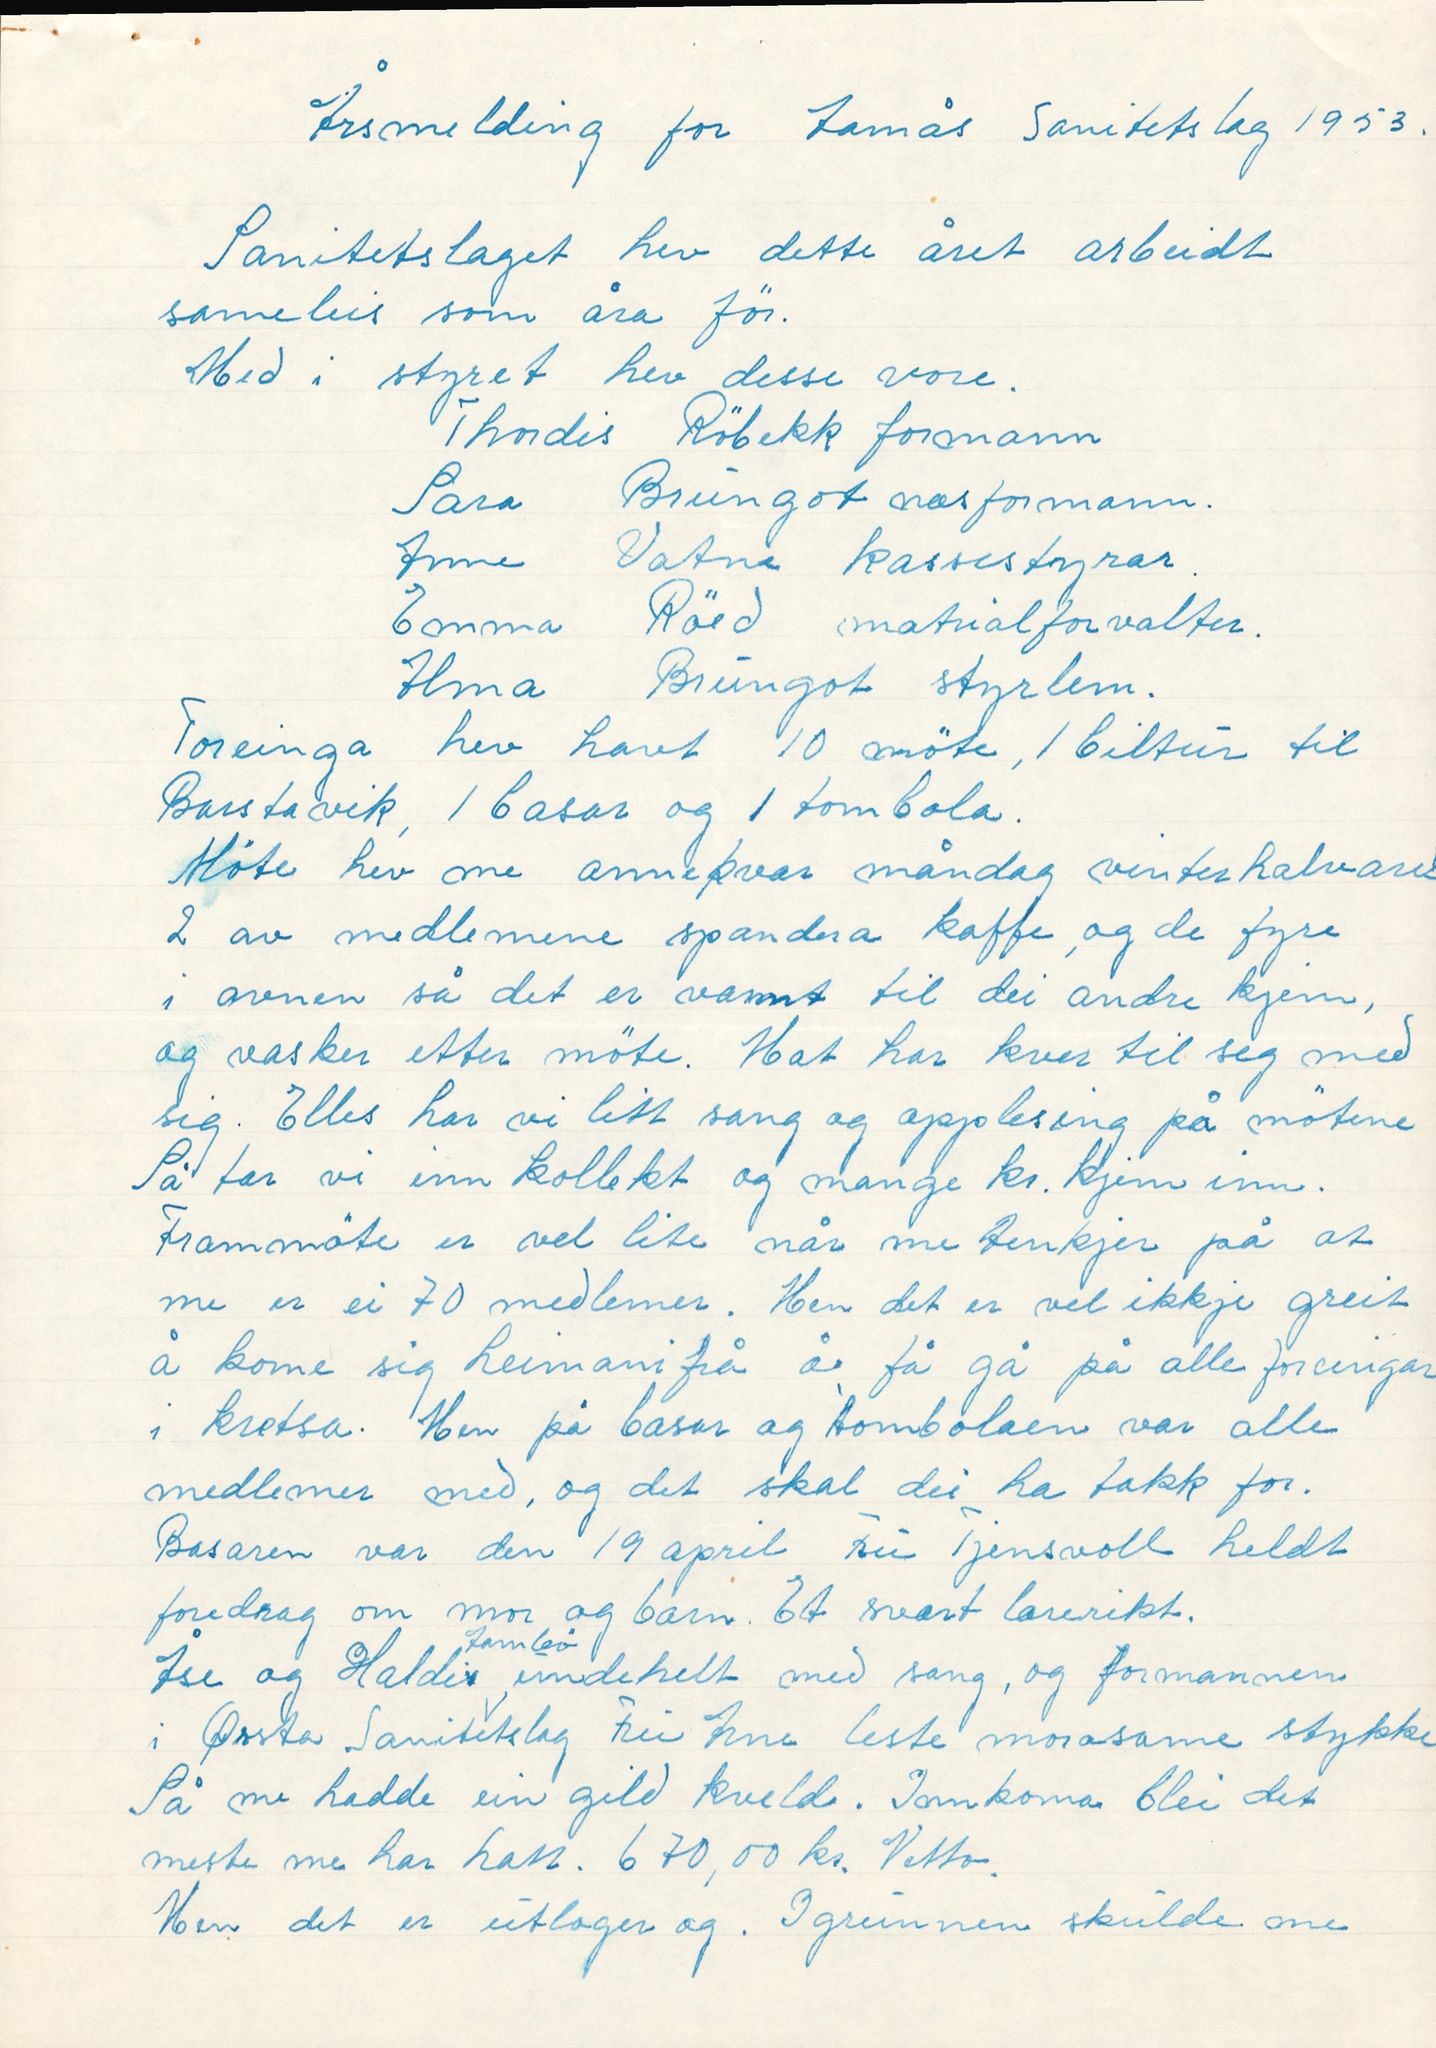 Årsmelding for Åmås Sanitetslag 1953.
Sanitetslaget hev dette året arbeidt
sameleis som åra för.
Med i styret hev desse vore.
Thordis Röbekk formann
Sara Brungot næsformann.
Anne Vatne kassestyrar.
Emma Röed matrialforvalter.
Alma Brungot styrlem.
Foreinga hev havt 10 möte, 1 biltur til
Barstavik, 1 basar og 1 tombola.
Möte hev me annekvar måndag vinterhalvaret
2 av medlemene spandera kaffe, og de fyre
i ovnen så det er varmt til dei andre kjem,
og vasker etter möte. Mat har kver til seg med
sig. Elles har vi litt sang og opplesing på mötene
Så tar vi inn kollekt og mange kr. kjem inn.
Frammöte er vel lite når me tenkjer på at
me er ei 70 medlemer. Men det er vel ikkje greit
å kome sig heimanifrå å få gå på alle foreingar
i kretsa. Men på basar og tombolaen var alle
medlemer med, og det skal dei ha takk for.
Basaren var den 19 april Fru Tjensvoll heldt
foredrag om mor og barn. Et svært lærerikt.
Åse og Haldis underhelt med sang, og formannen
i Ørsta Sanitetslag Fru Arne leste morosame stykke
Så me hadde ein gild kveld. Innkoma blei det
meste me har hatt. 670,00 kr. Netto.
Men det er utlager og. I grunnen skulde me